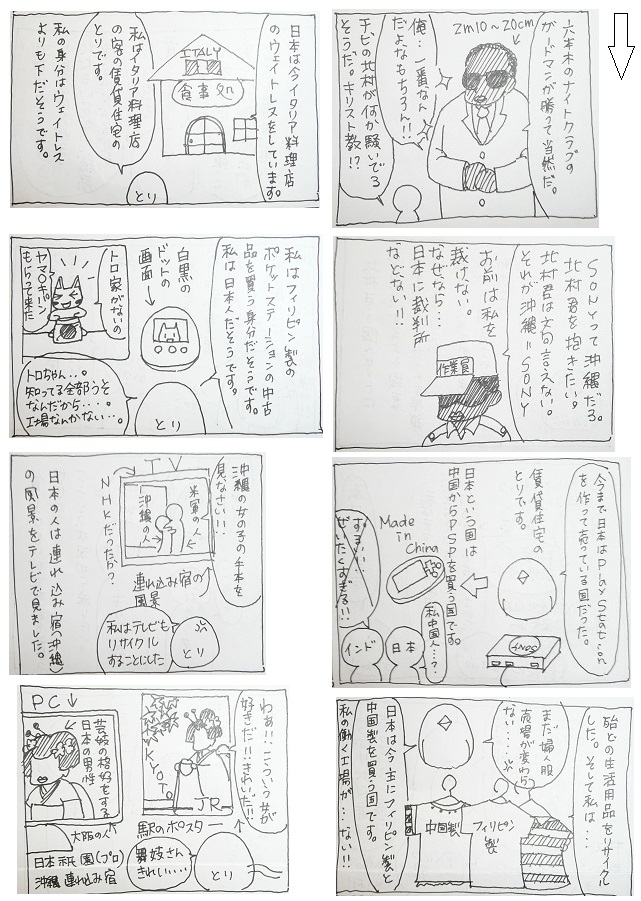 六本木のナイトクラブの
ガードマンが勝って当然だ。
2m10～20cm
俺…一番なん
だよなもちろん!!
チビの北村が何か騒いでろ
そうだ。キリスト教!?
SONYって沖縄だろ。
北村君を抱きたい。
北村君は文句言えない。
それが沖縄=SONY
お前は私を
裁けない。
なぜなら…
日本に裁判所
などない!!
作業員
今まで日本はPlayStation
を作って売っている国だった。
賃貸住宅の
とりです。
SONY
日本という国は
中国からPSPを買う国です。
Made
in
China
私中国人…?
日本
インド
ずるい…
ぜいたくすぎる!!
殆どの生活用品をリサイクル
した。そして私は…
まだ婦人服
売場が変わら
ない…
中国製
フィリピン
製
日本は今主にフィリピン製と
中国製を買う国です。
私の働く工場が…ない!!
日本は今イタリア料理店
のウェイトレスをしています。
ITALY
食事処
私はイタリア料理店
の客の賃貸住宅の
とりです。
とり
私の身分はウェイトレス
よりも下だそうです。
私はフィリピン製の
ポケットステーションの中古
品を買う身分だそうです。
私は日本人だそうです。
白黒の
ドットの
画面
とり
トロ家がないの
ヤマザキパン
もらって来た
トロちゃん…。
知ってる全部うそ
なんだから…。
工場なんかない…。
沖縄の女の子の手本を
見なさい!!
TV
米軍の人
沖縄の人
NHKだったか?
連れ込み宿の
風景
とり
私はテレビも
リサイクル
することにした
日本の人は連れ込み宿(沖縄)
の風景をテレビで見ました。
わぁ!!こういう女が
好きだ!!きれいだ!!
KYOTO
JR
駅のポスター
舞妓さん
きれい…
とり
PC
芸妓の格好をする
日本の男性
大阪の人
日本祇園(プロ)
沖縄連れ込み宿